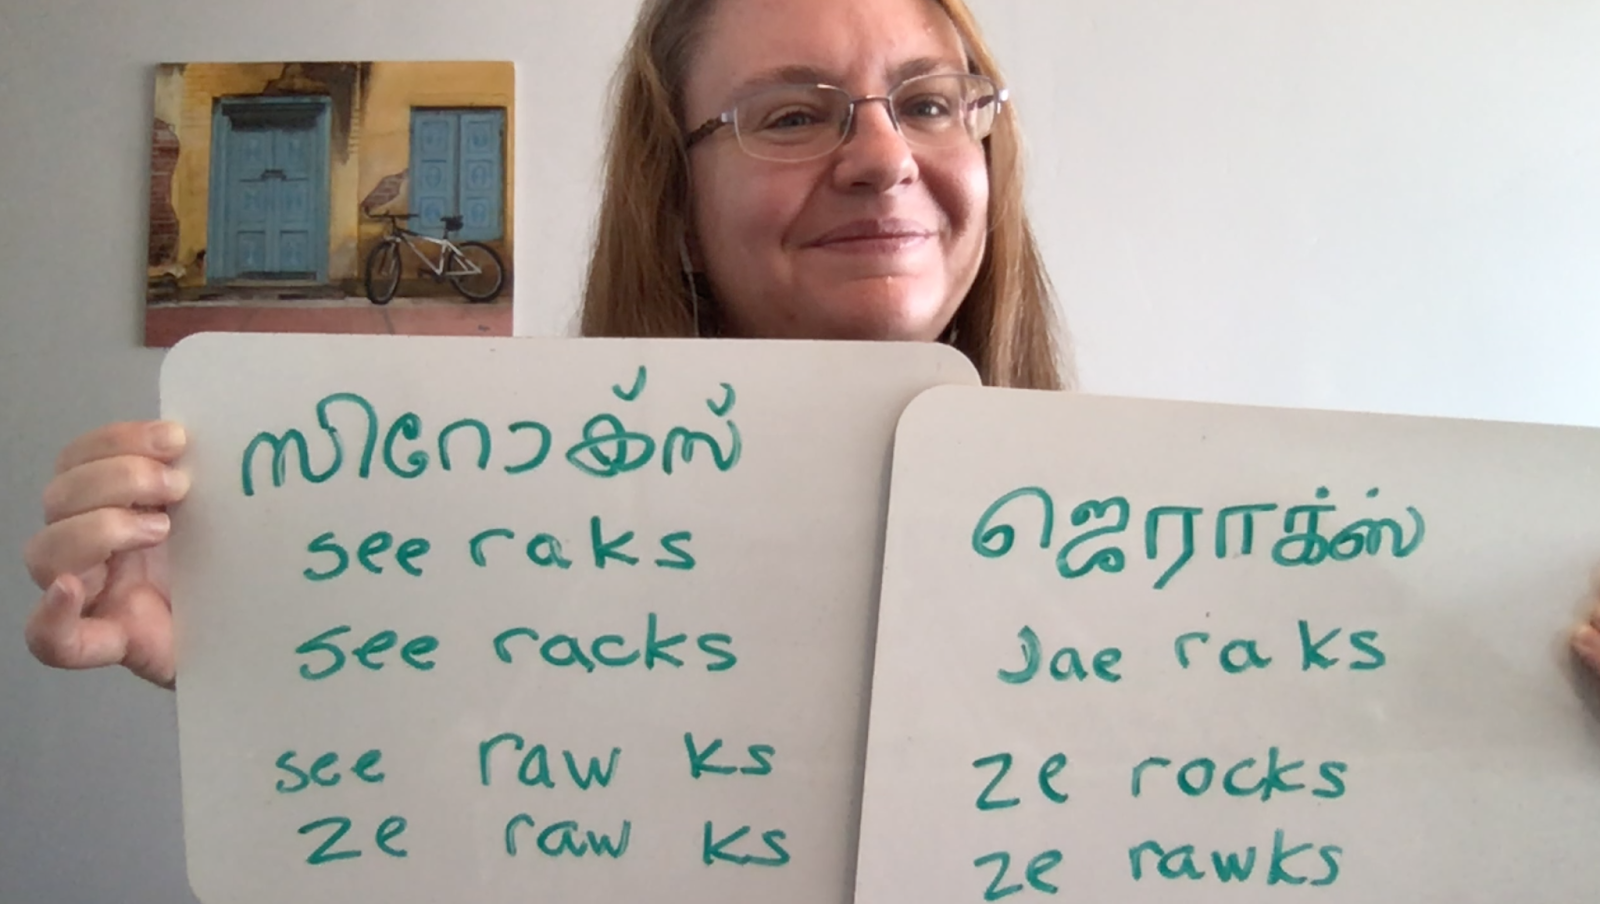 സിറോക്സ്
see raks
see racks
see raw ks
ze raw ks
ஜெராக்ஸ்
Jae raks
ze rocks
ze rawks